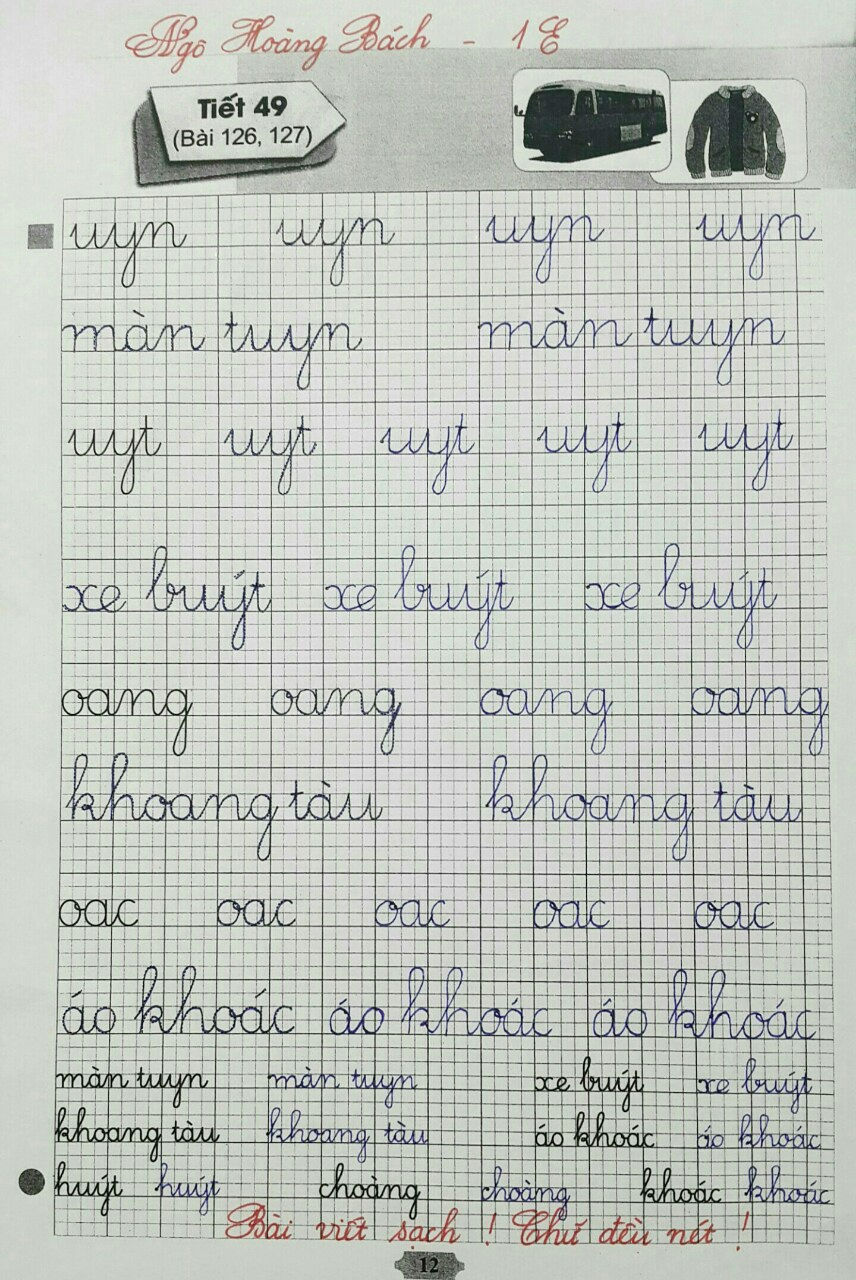 Ngô Hoàng Bách - 1E
Tiết 49
(Bài 126, 127)
uyn uyn uyn uyn
màn tuyn màn tuyn
uyt uyt uyt uyt uyt
xe buýt xe buýt xe buýt
oang oang oang oang
khoang tàu khoang tàu
oac oac oac oac oac
áo khoác áo khoác áo khoác
màn tuyn màn tuyn xe buýt xe buýt
khoang tàu khoang tàu áo khoác áo khoác
huýt huýt choàng choàng khoác khoác
Bài viết sạch ! Chữ đều nét !
12